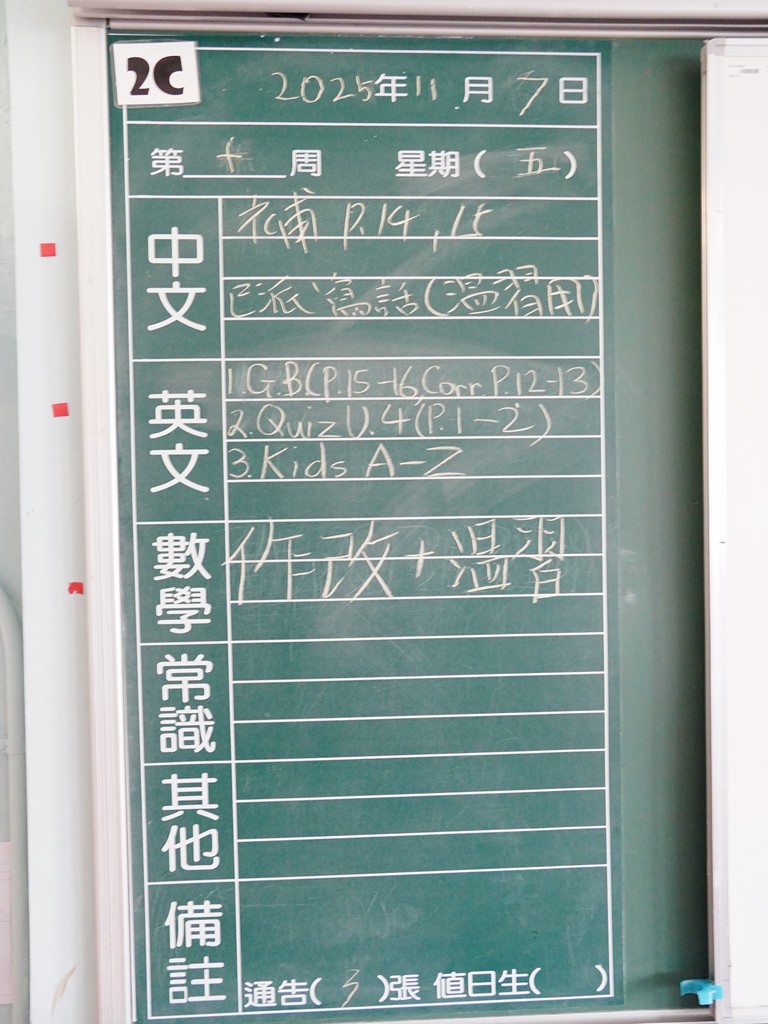 2C
2025年11月7日
第十周 星期(五)
中文
補 P.14, 15
已派寫話(溫習用)
英文
1. G.B(P.15-16, Corr. P.12-13)
2. Quiz U.4(P.1-2)
3. Kids A-Z
數學
作改+溫習
常識
其他
備註
通告(3)張 值日生( )